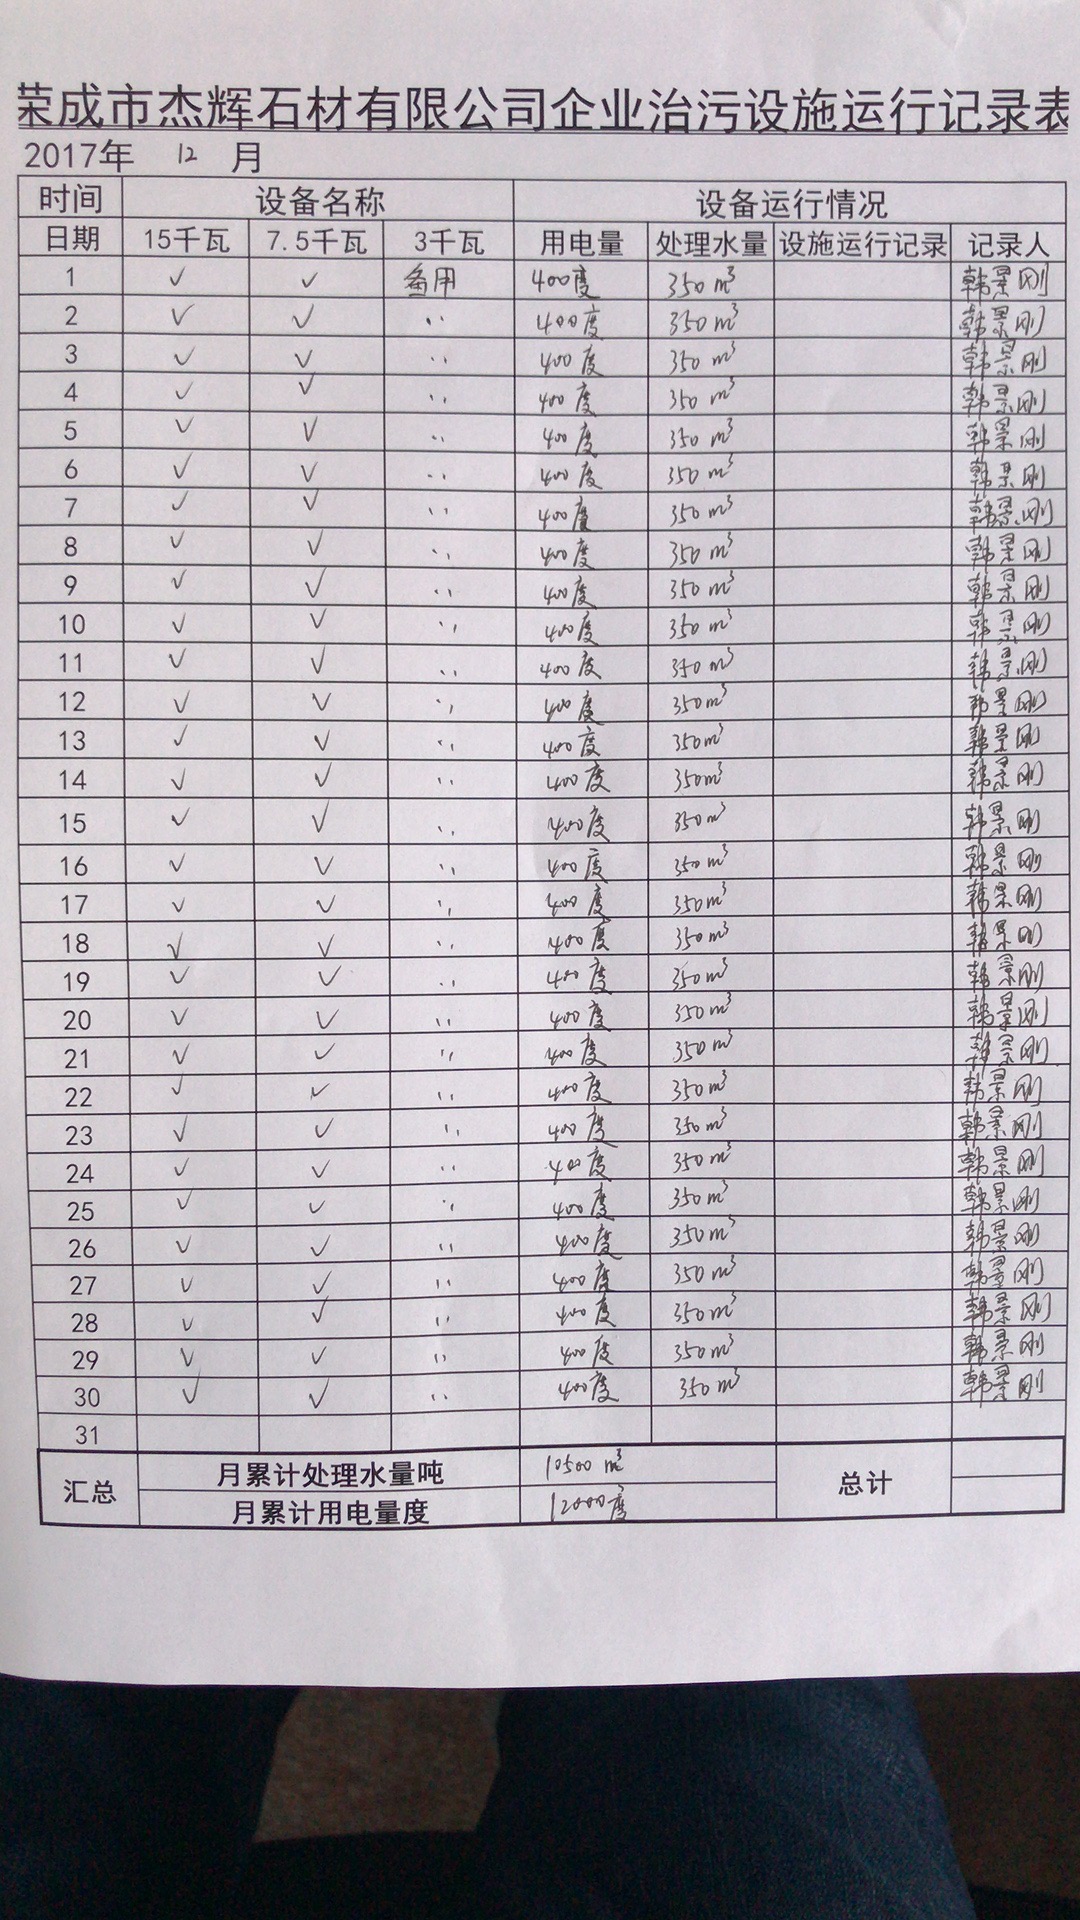 荣成市杰辉石材有限公司企业治污设施运行记录表
2017年 12 月
时间 设备名称 设备运行情况
日期 15千瓦 7.5千瓦 3千瓦 用电量 处理水量 设施运行记录 记录人
1 ✓ ✓ 备用 400度 350m³ 韩景刚
2 ✓ ✓ 〃 400度 350m³ 韩景刚
3 ✓ ✓ 〃 400度 350m³ 韩景刚
4 ✓ ✓ 〃 400度 350m³ 韩景刚
5 ✓ ✓ 〃 400度 350m³ 韩景刚
6 ✓ ✓ 〃 400度 350m³ 韩景刚
7 ✓ ✓ 〃 400度 350m³ 韩景刚
8 ✓ ✓ 〃 400度 350m³ 韩景刚
9 ✓ ✓ 〃 400度 350m³ 韩景刚
10 ✓ ✓ 〃 400度 350m³ 韩景刚
11 ✓ ✓ 〃 400度 350m³ 韩景刚
12 ✓ ✓ 〃 400度 350m³ 韩景刚
13 ✓ ✓ 〃 400度 350m³ 韩景刚
14 ✓ ✓ 〃 400度 350m³ 韩景刚
15 ✓ ✓ 〃 400度 350m³ 韩景刚
16 ✓ ✓ 〃 400度 350m³ 韩景刚
17 ✓ ✓ 〃 400度 350m³ 韩景刚
18 ✓ ✓ 〃 400度 350m³ 韩景刚
19 ✓ ✓ 〃 400度 350m³ 韩景刚
20 ✓ ✓ 〃 400度 350m³ 韩景刚
21 ✓ ✓ 〃 400度 350m³ 韩景刚
22 ✓ ✓ 〃 400度 350m³ 韩景刚
23 ✓ ✓ 〃 400度 350m³ 韩景刚
24 ✓ ✓ 〃 400度 350m³ 韩景刚
25 ✓ ✓ 〃 400度 350m³ 韩景刚
26 ✓ ✓ 〃 400度 350m³ 韩景刚
27 ✓ ✓ 〃 400度 350m³ 韩景刚
28 ✓ ✓ 〃 400度 350m³ 韩景刚
29 ✓ ✓ 〃 400度 350m³ 韩景刚
30 ✓ ✓ 〃 400度 350m³ 韩景刚
31
汇总 月累计处理水量吨 10500m³ 总计
月累计用电量度 12000度